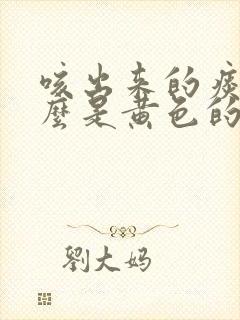 咳出来的痰
麼是黄色的
劉大妈